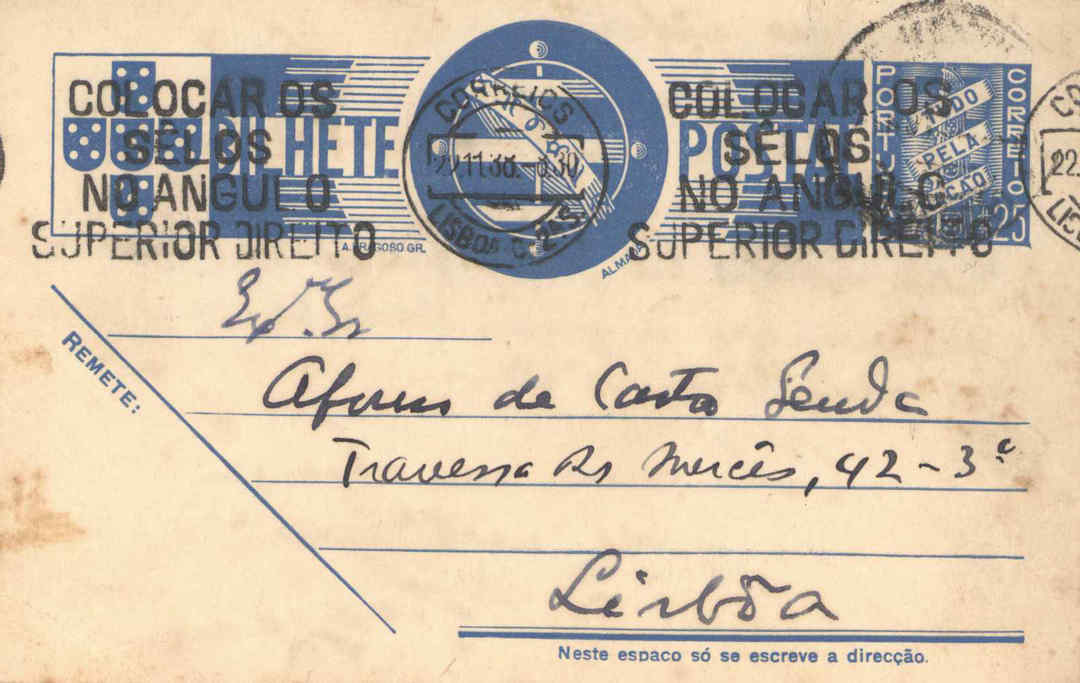 BILHETE POSTAL
PORTUGAL CORREIO
TUDO
PELA
NAÇÃO
$25
COLOCAR OS
SELOS
NO ANGULO
SUPERIOR DIREITO
CORREIOS
22.11.38. - 8.30
LISBOA C.
COLOCAR OS
SELOS
NO ANGULO
SUPERIOR DIREITO
CO
22.
LIS
A. FRAGOSO GR.
REMETE:
Ex. Sr
Afonso de Castro Senda
Travessa das Mercês, 42-3º
Lisbôa
Neste espaço só se escreve a direcção.